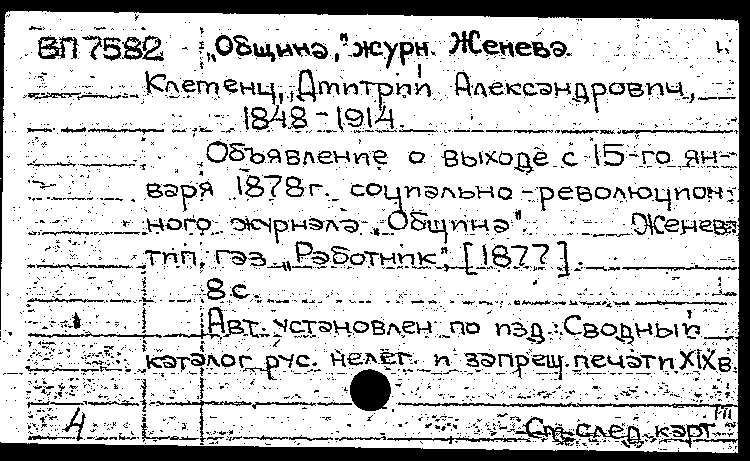 ВП 7582 „Община," журн. Женева. 1.
Клеменц, Дмитрий Александрович,
1848-1914.
Объявление о выходе с 15-го ян-
варя 1878г. социально-революцион-
ного журнала „Община". Женева
тип. газ. „Работник", [1877].
8 с.
Авт. установлен по изд.: Сводный
каталог рус. нелег. и запрещ. печати XIX в.
4 См. след. карт.